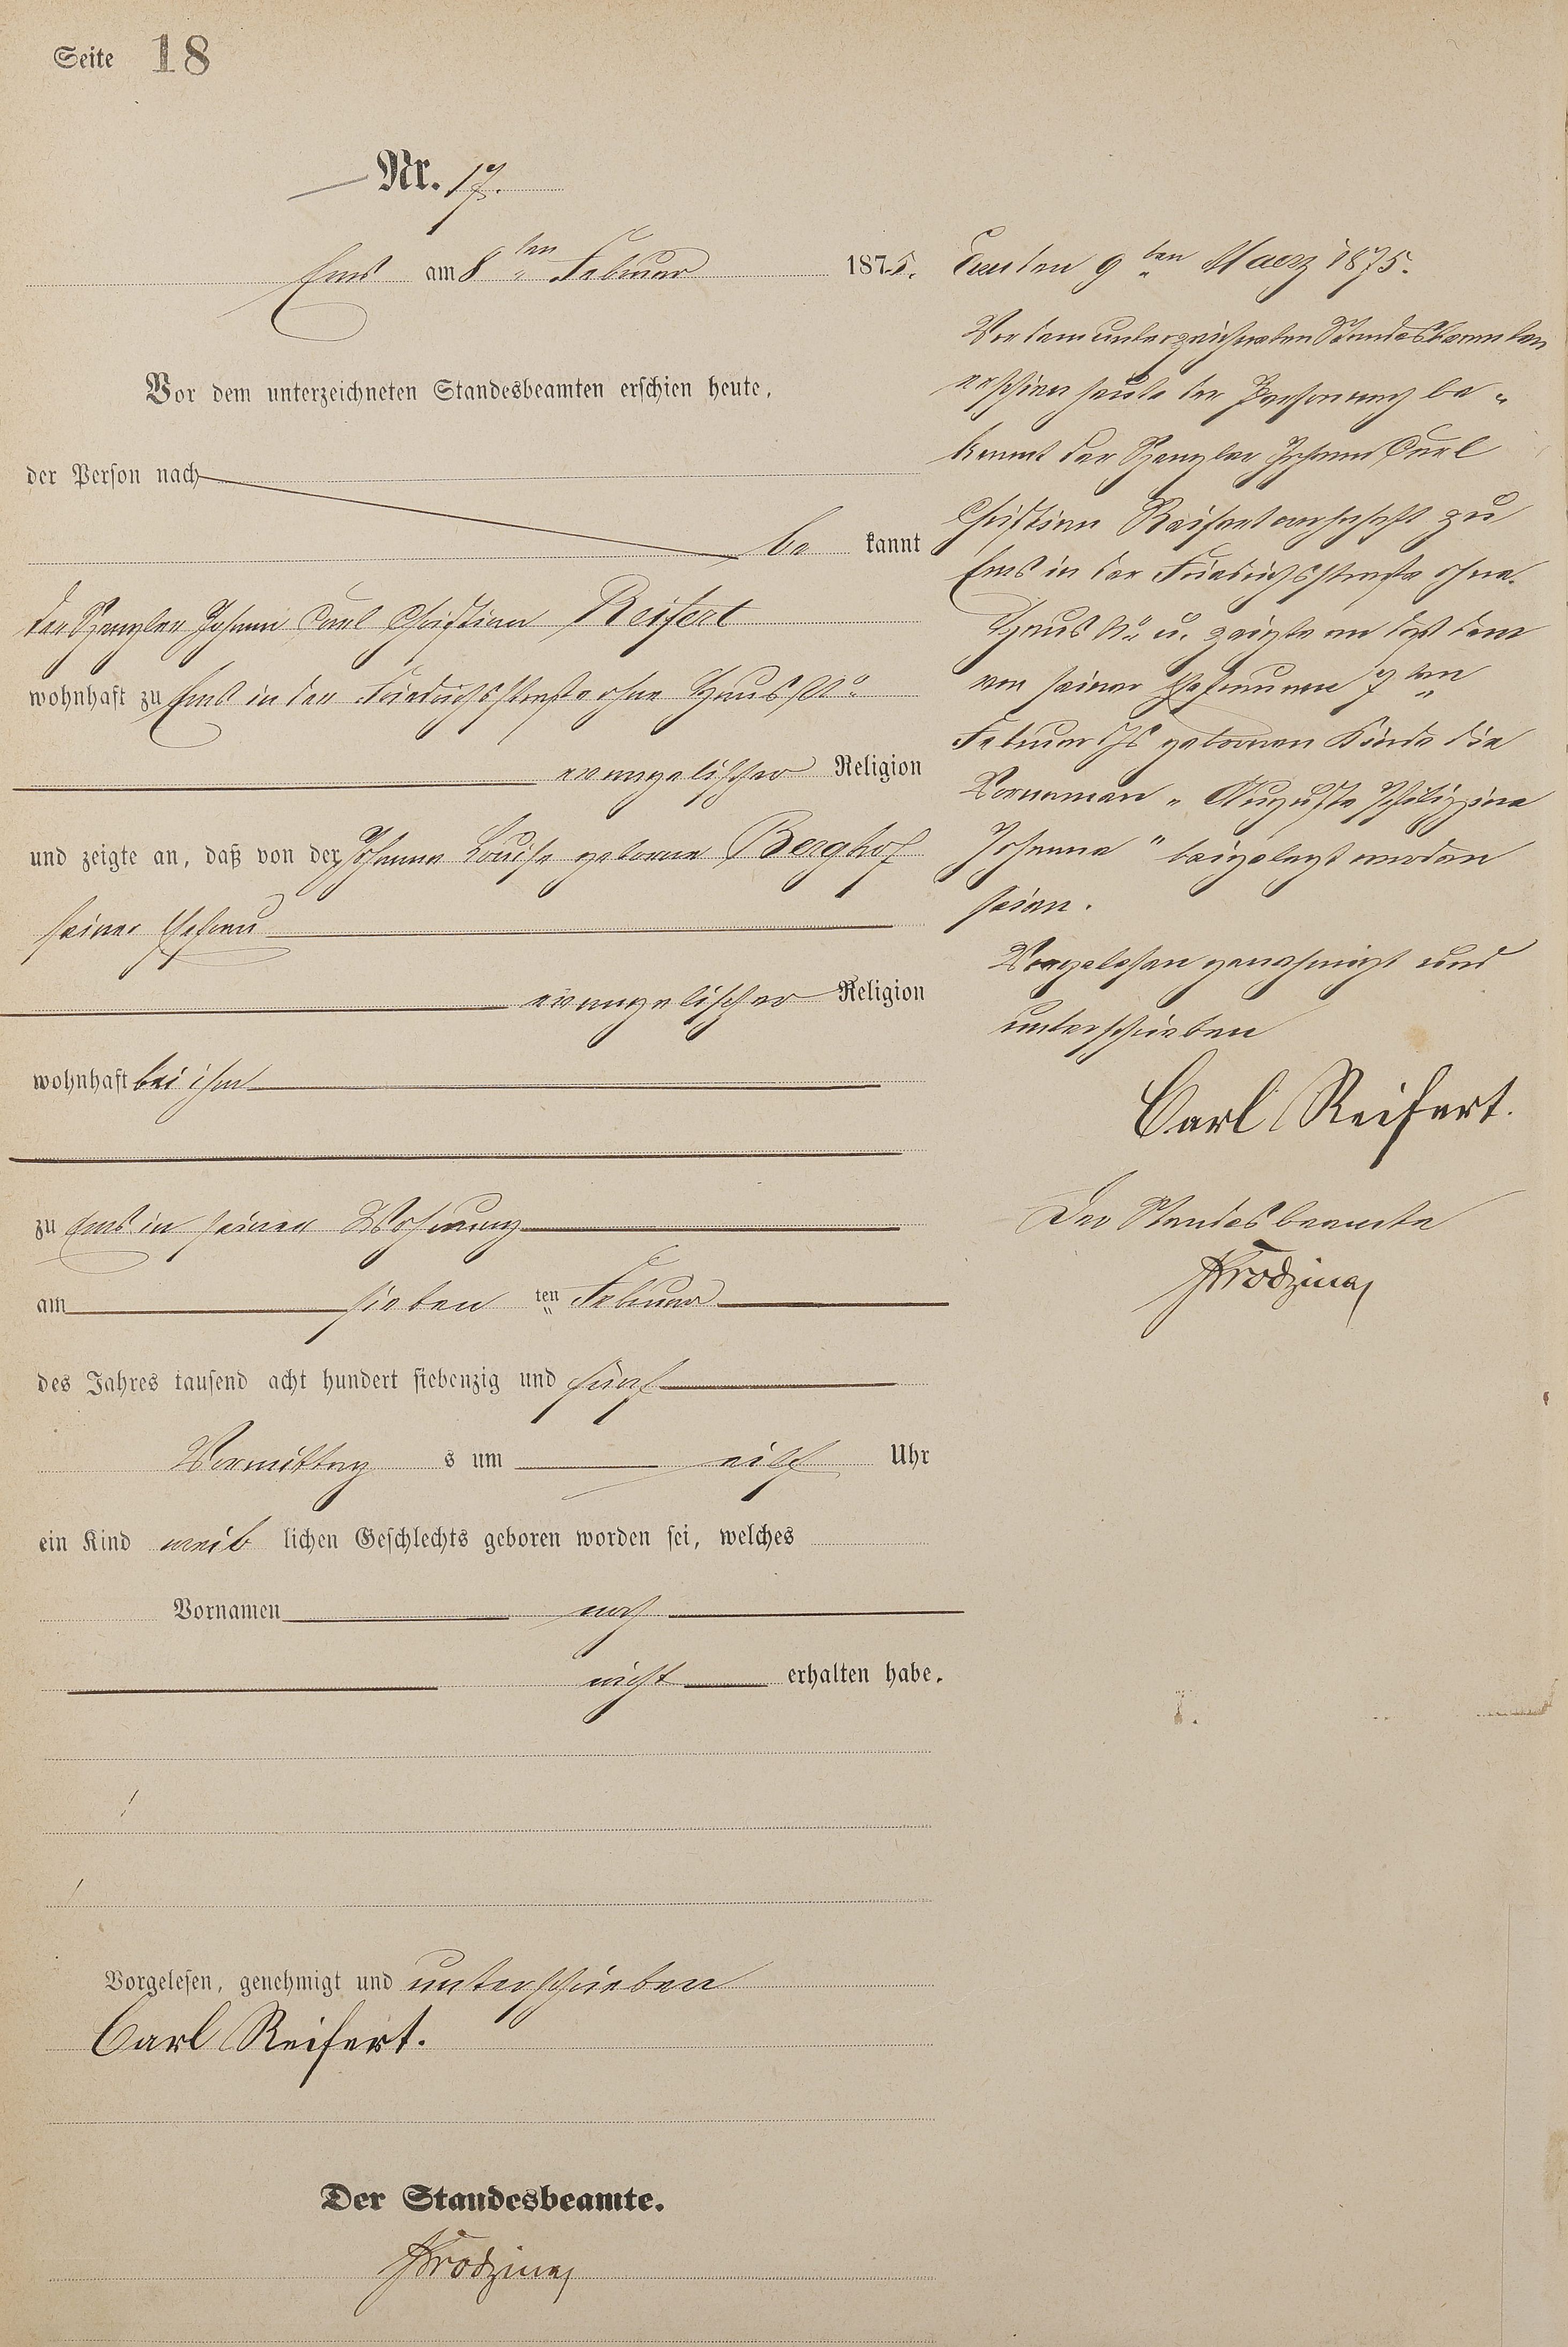 Seite 18
Nr. 17.
Ems am 8ten Februar 1875.
Vor dem unterzeichneten Standesbeamten erschien heute,
der Person nach
be kannt
der Spengler Johann Carl Christian Reifert
wohnhaft zu Ems in der Friedrichsstraße ohne Haus No
evangelischer Religion
und zeigte an, daß von der Johanna Louise geborne Berghof
seiner Ehefrau
evangelischer Religion
wohnhaft bei ihm
zu Ems in seiner Wohnung
am sieben ten Februar
des Jahres tausend acht hundert siebenzig und fünf
Vormittag s um eilf Uhr
ein Kind weib lichen Geschlechts geboren worden sei, welches
Vornamen noch
nicht erhalten habe.
Vorgelesen, genehmigt und unterschrieben
Carl Reifert.
Der Standesbeamte.
Ems den 9ten Maerz 1875.
Vor dem unterzeichneten Standesbeamten
erschien heute der Person nach be-
kannt der Spengler Johann Carl
Christian Reifert wohnhaft zu
Ems in der Friedrichsstraße ohne
Haus No u. zeigte an daß dem
von seiner Ehefrau am 7ten
Februar geborenen Kinde die
Vornamen „Auguste Philippine
Johanna" beigelegt worden
seien.
Vorgelesen genehmigt und
unterschrieben
Carl Reifert.
Der Standesbeamte